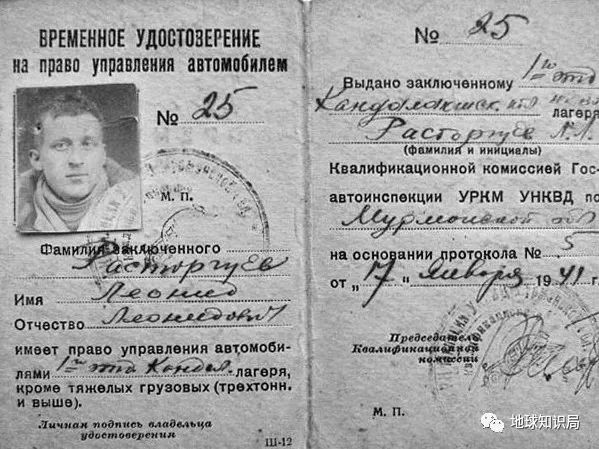 ВРЕМЕННОЕ УДОСТОЗЕРЕНИЕ
на право управления автомобилем
№ 25
М. П.
Фамилия заключенного
Расторгуев
Имя Леонид
Отчество Леонидович
имеет право управления автомоби-
лями 1го отд Кандал. лагеря,
кроме тяжелых грузовых (трехтонн.
и выше).
Личная подпись владельца
удостоверения
Ш-12
№ 25
Выдано заключенному 1го отд
Кандалакшск лагеря
Расторгуев Л. Л.
(фамилия и инициалы)
Квалификационной комиссией Гос-
автоинспекции УРКМ УНКВД по
Мурманской обл
на основании протокола № 5
от „17" января 1941 г.
Председатель
Квалификационной
комиссии
М. П.
地球知识局